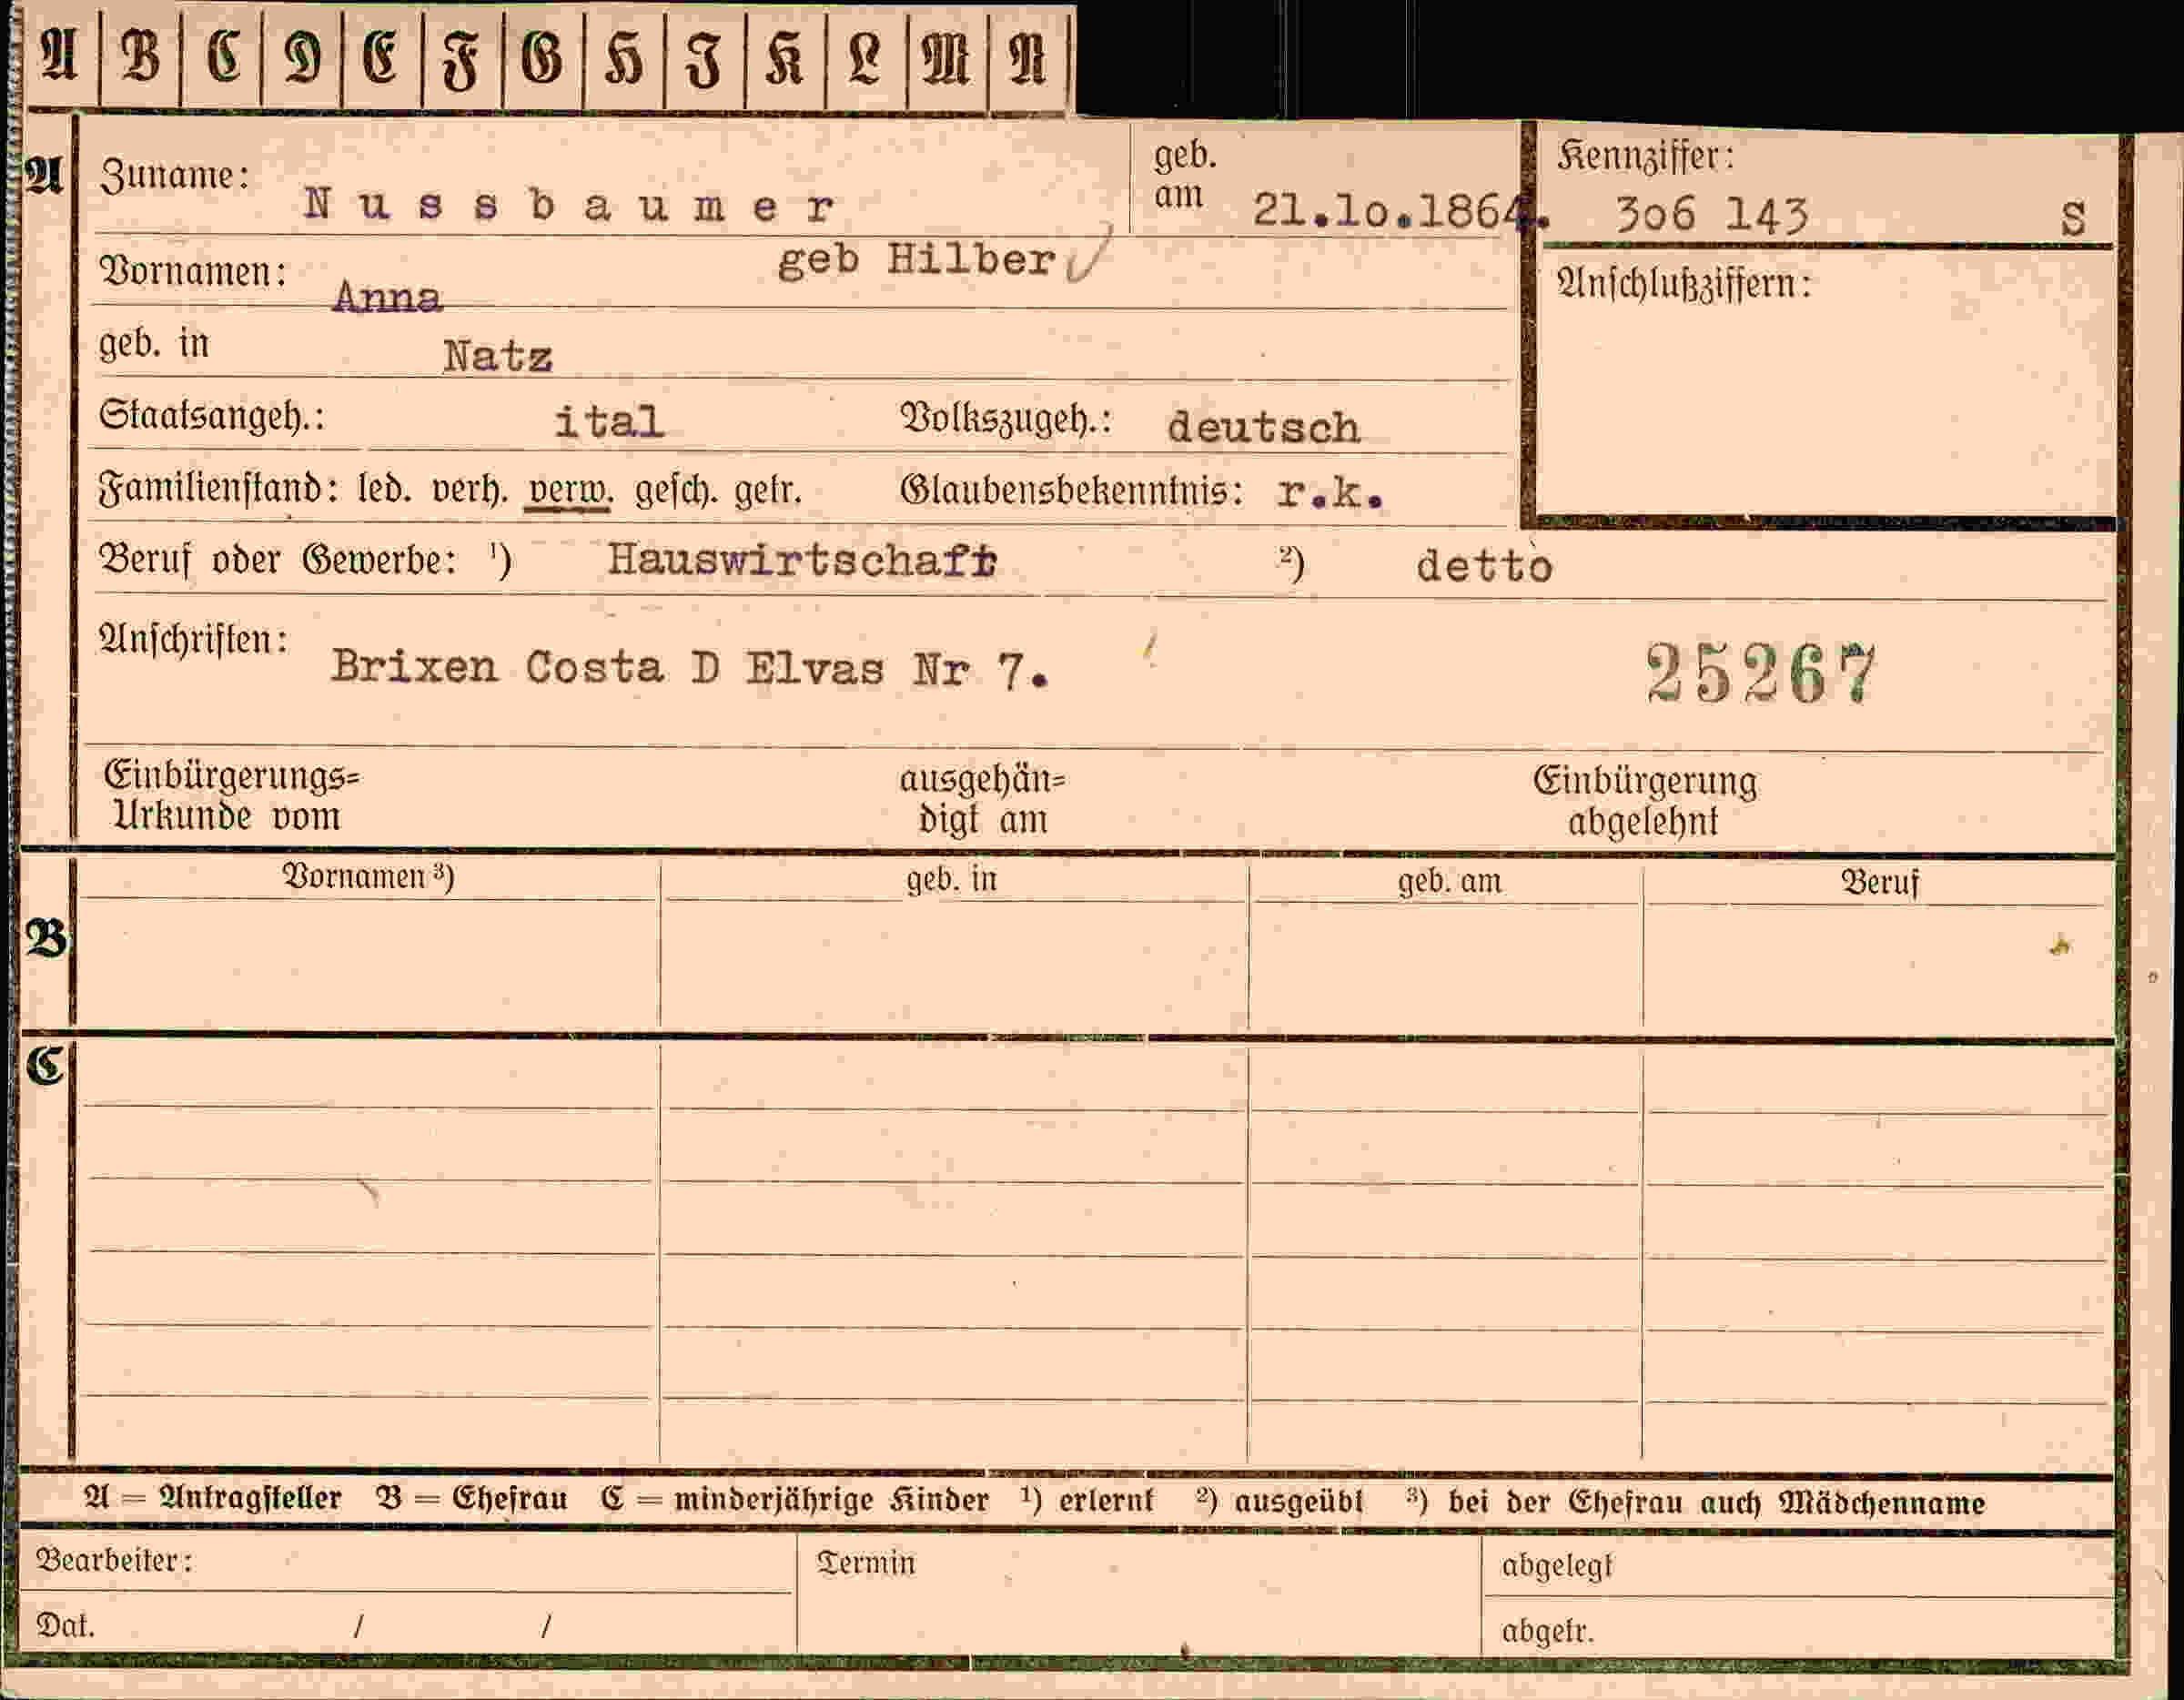 A B C D E F G H I K L M N
A Zuname: Nussbaumer geb. am 21.10.1864. Kennziffer: 306 143 S
Vornamen: Anna geb Hilber Anschlußziffern:
geb. in Natz
Staatsangeh.: ital Volkszugeh.: deutsch
Familienstand: led. verh. verw. gesch. getr. Glaubensbekenntnis: r.k.
Beruf oder Gewerbe: ¹) Hauswirtschaft ²) detto
Anschriften: Brixen Costa D Elvas Nr 7. 25267
Einbürgerungs= ausgehän= Einbürgerung
Urkunde vom digt am abgelehnt
Vornamen ³) geb. in geb. am Beruf
B
C
A = Antragsteller B = Ehefrau C = minderjährige Kinder ¹) erlernt ²) ausgeübt ³) bei der Ehefrau auch Mädchenname
Bearbeiter: Termin abgelegt
Dat. / / abgetr.